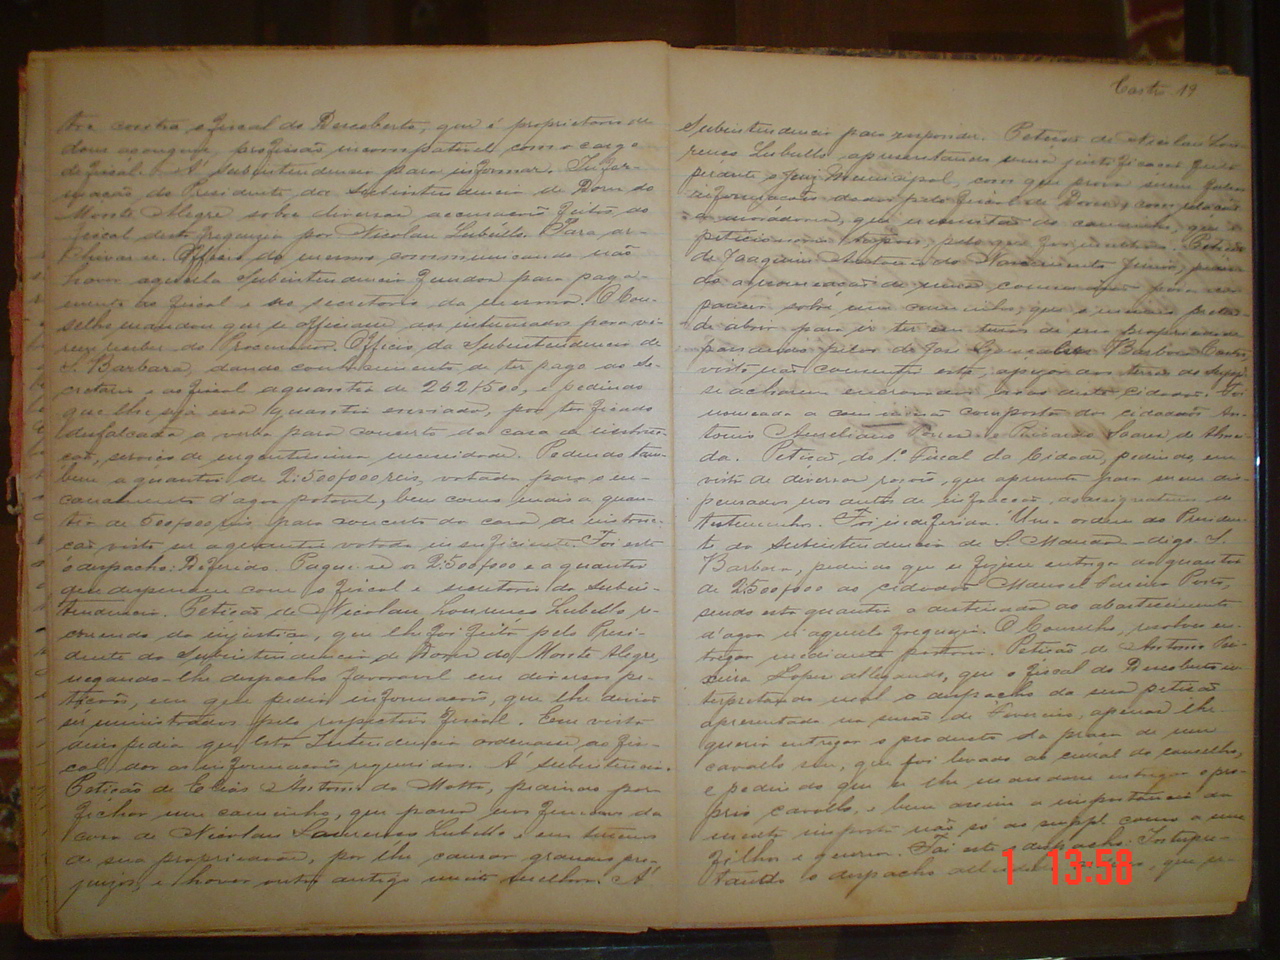 tra contra o fiscal do Descoberto, que é proprietario de
dous açougues, profissão incompativel com o cargo
de fiscal. Á Subintendencia para informar. Infor-
mação do Presidente da Subintendencia de Bom do
Monte Alegre sobre diversas accusações feitas ao
fiscal desta freguezia por Nicolau Lubello. Para ar-
chivar-se. Officio do mesmo communicando não
haver aquella Subintendencia fundos para paga-
mento ao fiscal e ao secretario da mesma. O Con-
selho mandou que se officiasse aos interessados para vi-
rem receber do Procurador. Officio da Subintendencia de
S. Barbara, dando conhecimento de ter pago ao Se-
cretario e ao fiscal a quantia de 262$500, e pedindo
que lhe seja essa quantia enviada, por ter ficado
desfalcada a verba para concerto da casa de instruc-
ção, serviço de urgentissima necessidade. Pedindo tam-
bem a quantia de 2:500$000 reis, votada para o en-
canamento d'agoa potavel, bem como mais a quan-
tia de 500$000 reis para concerto da casa de instruc-
ção, visto ser a quantia votada insufficiente. Foi este
o despacho: Deferido. Pague-se os 2:500$000 e a quantia
que despenderam com o fiscal e secretario da Subin-
tendencia. Petição de Nicolau Lourenço Lubello re-
correndo da injustiça, que lhe foi feita pelo Presi-
dente da Subintendencia de Bom do Monte Alegre,
negando-lhe despacho favoravel em diversas pe-
tições, em que pedia informações, que lhe deviam
ser ministradas pelo respectivo fiscal. Em vista
disso pedia que esta Intendencia ordenasse ao fis-
cal dar as informações requeridas. Á Subintendencia.
Petição de Elias Antonio da Motta, pedindo para
fechar um caminho, que passa nos fundos da
casa de Nicolau Lourenço Lubello e em terrenos
de sua propriedade, por lhe causar grandes pre-
juizos, e haver outro antigo muito melhor. Á
Castro 19
Subintendencia para responder. Petição de Nicolau Lou-
renço Lubello apresentando uma justificação feita
perante o Juiz Municipal, com que prova serem falsas
informações dadas pelo fiscal de Bom, com relação
a moradores, que
peticionario
de Joaquim Antonio do Nascimento Junior, pedin-
do a nomeação de uma commissão para dar
parecer sobre um caminho, que o mesmo preten-
de abrir para ir ter em terras de sua propriedade
passando pelos de José Gonçalves Barbosa Castro,
visto não consentir este, apezar das terras do
se acharem encravadas nas deste cidadão. Foi
nomeada a commissão composta dos cidadãos An-
tonio Aureliano e Ricardo Soares de Almei-
da. Petição do 1.º Fiscal da Cidade, pedindo, em
vista de diversas rasões, que apresenta para serem dis-
pensadas nos autos de infracção, as assignaturas de
testemunhas. Foi indeferida. Uma ordem do Presiden-
te da Subintendencia de S. Manoel - digo S.
Barbara, pedindo que se fizesse entrega da quantia
de 2:500$000 ao cidadão Manoel Pereira Porto,
sendo esta quantia a destinada ao abastecimento
d'agoa n'aquella freguezia. O Conselho, resolveu en-
tregar mediante portaria. Petição de Antonio Tei-
xeira Lopes allegando, que o fiscal do Descoberto in-
terpretando mal o despacho da sua petição
apresentada na sessão de Fevereiro, apenas lhe
queria entregar o producto da praça de um
cavallo seu, que foi levado ao curral do conselho,
e pedindo que se lhe mandasse entregar o pro-
prio cavallo, e bem assim a importancia da
multa imposta não só ao supp.e como a seus
filhos e genros. Foi este o despacho: Interpre-
tando o despacho que se
1 13:58